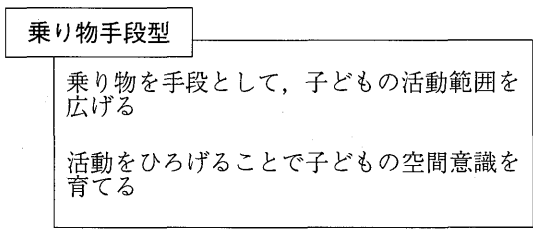 乗り物手段型
乗り物を手段として，子どもの活動範囲を
広げる
活動をひろげることで子どもの空間意識を
育てる